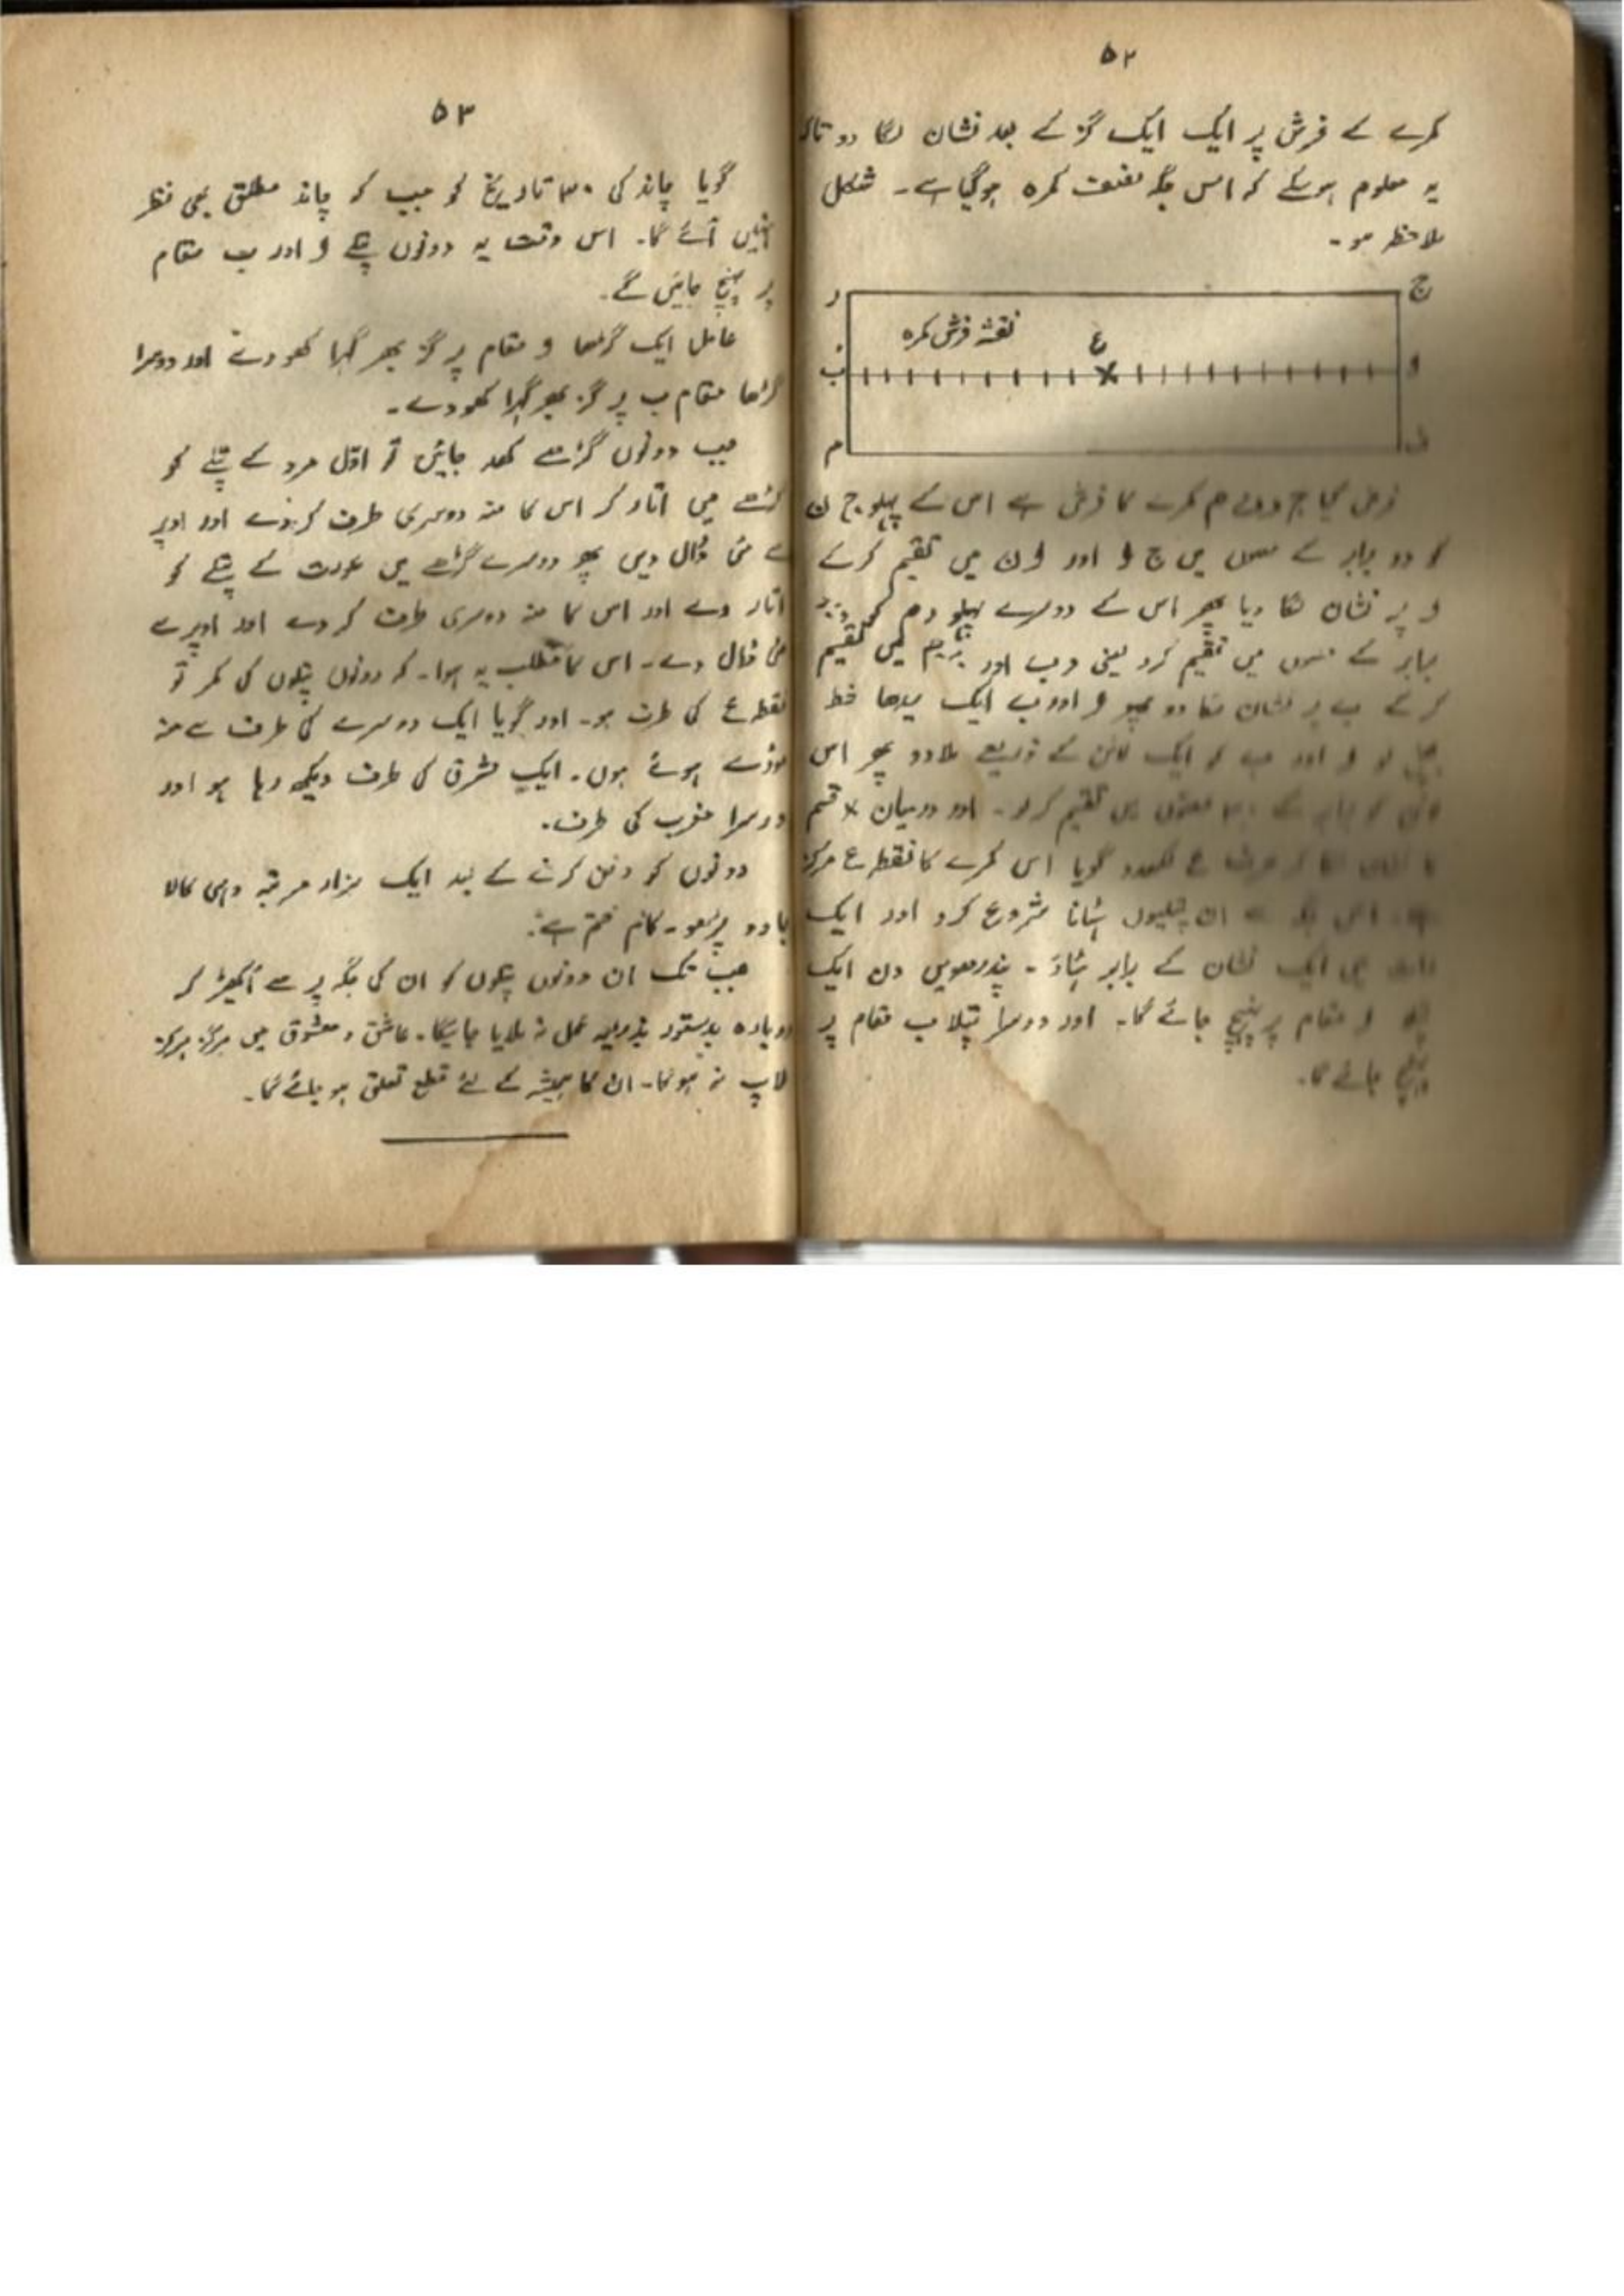 ۵۲
کمرے کے فرش پر ایک ایک گز کے بعد نشان لگا دو تاکہ
یہ معلوم ہوسکے کہ اس جگہ نصف کمرہ ہوگیا ہے۔ شکل
ملاحظہ ہو۔
ج
ر
نقشہ فرش کمرہ
ع
و
ب
ن
م
فرض کیا ج ر ن م کمرے کا فرش ہے اس کے پہلو ج ن
کو دو برابر کے حصوں میں ج و اور و ن میں تقسیم کرکے
و پر نشان لگا دیا پھر اس کے دوسرے پہلو ر م کو
برابر کے حصوں میں تقسیم کرو یعنی ر ب اور ب م میں تقسیم
کرکے ب پر نشان لگا دو پھر و اور ب ایک سیدھا خط
لو و اور ب کو ایک لائن کے ذریعے ملادو پھر اس
کو برابر کے حصوں میں تقسیم کرلو۔ اور درمیان × قسم
کا نشان لگا کر ع لکھدو گویا اس کمرے کا نقطہ ع مرکز
اس جگہ سے ان پتلیوں ہٹانا شروع کرو اور ایک
ہی ایک نشان کے برابر ہٹاؤ۔ پندرھویں دن ایک
و مقام پر پہنچ جائے گا۔ اور دوسرا پتلا ب مقام پر
پہنچ جائے گا۔
۵۳
گویا چاند کی ۳۰ تاریخ کو جب کہ چاند مطلق بھی نظر
نہیں آئے گا۔ اس وقت یہ دونوں پتلے و اور ب مقام
پر پہنچ جائیں گے۔
عامل ایک گڑھا و مقام پر گز بھر گہرا کھودے اور دوسرا
گڑھا مقام ب پر گز بھر گہرا کھودے۔
جب دونوں گڑھے کھد جائیں تو اوّل مرد کے پتلے کو
گڑھے میں اتار کر اس کا منہ دوسری طرف کردے اور اوپر
سے مٹی ڈال دیں پھر دوسرے گڑھے میں عورت کے پتلے کو
اتار دے اور اس کا منہ دوسری طرف کر دے اور اوپر سے
مٹی ڈال دے۔ اس کا مطلب یہ ہوا۔ کہ دونوں پتلوں کی کمر تو
نقطہ ع کی طرف ہو۔ اور گویا ایک دوسرے کی طرف سے منہ
موڑے ہوئے ہوں۔ ایک مشرق کی طرف دیکھ رہا ہو اور
دوسرا مغرب کی طرف۔
دونوں کو دفن کرنے کے بعد ایک ہزار مرتبہ وہی کالا
جادو پڑھو۔ کام ختم ہے۔
جب تک ان دونوں پتلوں کو ان کی جگہ پر سے اُکھیڑ کر
دوبارہ بدستور بذریعہ عمل نہ ملایا جائیگا۔ عاشق و معشوق میں ہرگز ہرگز
ملاپ نہ ہوگا۔ ان کا ہمیشہ کے لئے قطع تعلق ہو جائے گا۔